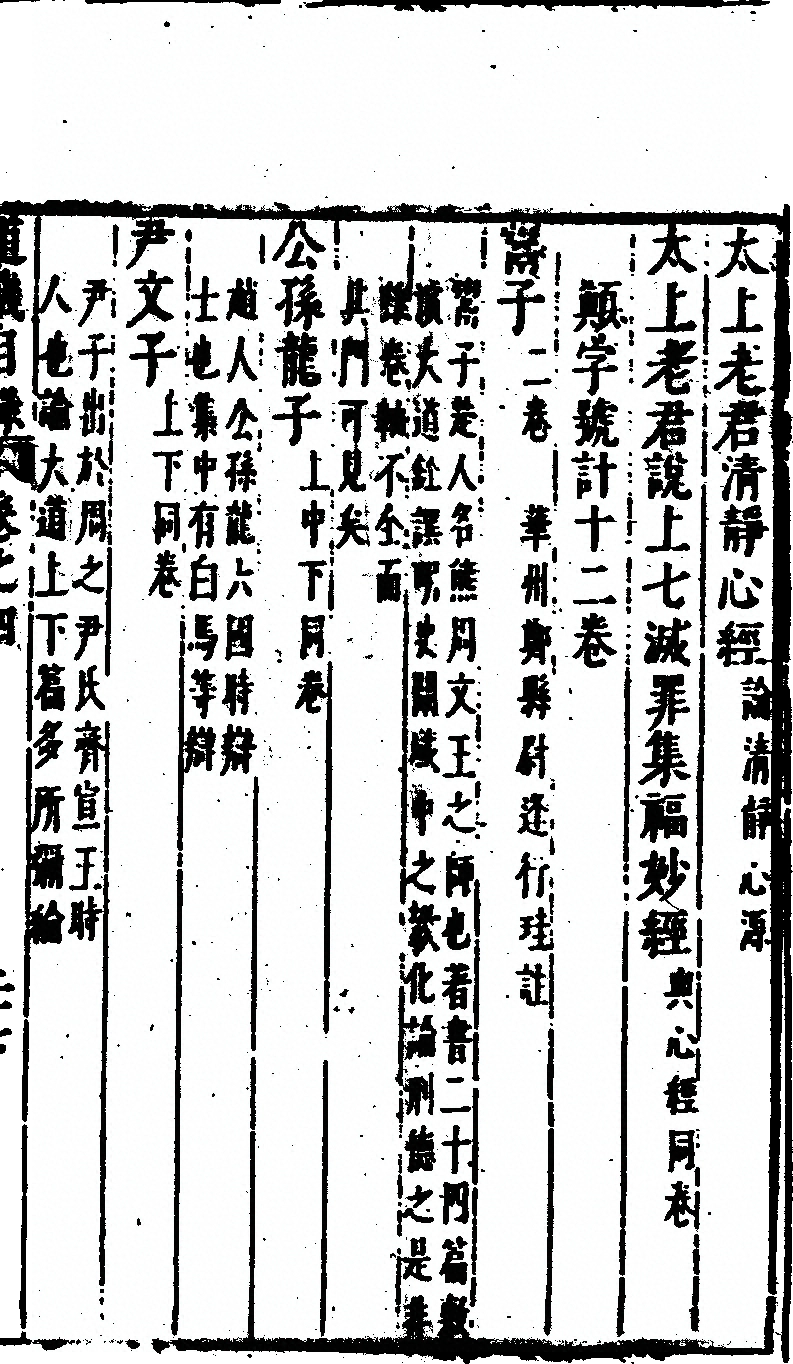 太上老君清靜心經 論清靜心源
太上老君說上七滅罪集福妙經 與心經同卷
顛字號計十二卷
鬻子 二卷 華州鄭縣尉逄行珪註
鬻子是人名熊周文王之師也著書二十四篇
大道 之教化論刑德之是非
雖卷軸不全而
其門可見矣
公孫龍子 上中下同卷
趙人公孫龍六國時辯
士也集中有白馬等辯
尹文子 上下同卷
尹子出於周之尹氏齊宣王時
人也論大道上下篇多所彌綸
道藏目錄 卷之四